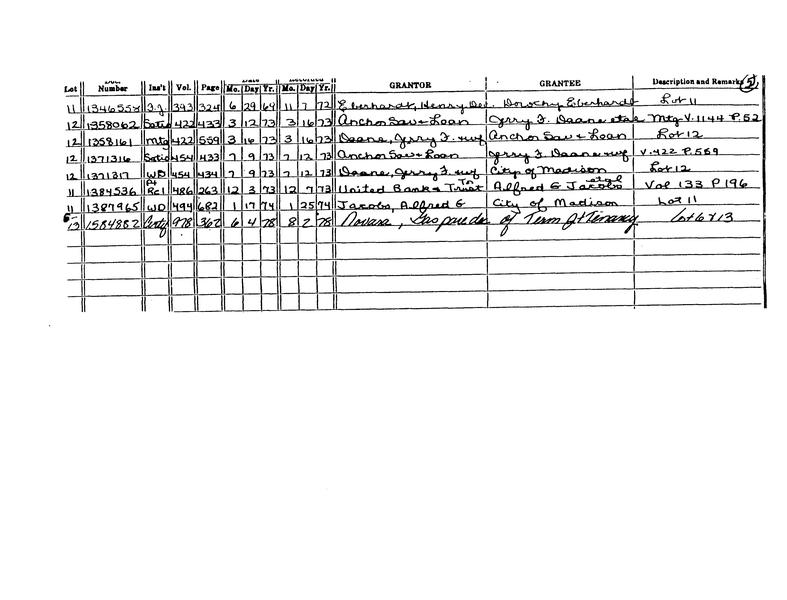 Lot Number Ins't Vol. Page Mo. Day Yr. Mo. Day Yr. GRANTOR GRANTEE Description and Remarks 5
11 1346558 F.J. 393 324 6 29 69 11 7 72 Eberhardt, Henry Dec. Dorothy Eberhardt Lot 11
12 1358062 Satis 422 433 3 12 73 3 16 73 Anchor Sav & Loan Jerry F. Deane etal Mtg V.1144 P.52
12 1358161 Mtg 422 559 3 16 73 3 16 73 Deane, Jerry F. & wf Anchor Sav & Loan Lot 12
12 1371316 Satis 454 433 7 9 73 7 12 73 Anchor Sav & Loan Jerry F. Deane & wf V.422 P.559
12 1371317 WD 454 434 7 9 73 7 12 73 Deane, Jerry F. & wf City of Madison Lot 12
11 1384536 Pt Rel 486 263 12 3 73 12 7 73 United Bank & Trust Tr Alfred G Jacobs etal Vol 133 P 196
11 1387965 WD 494 682 1 17 74 1 25 74 Jacobs, Alfred G City of Madison Lot 11
6- 13 1584882 978 362 6 4 78 8 2 78 Novara, of Term of J+Tenancy Lot 6 & 13